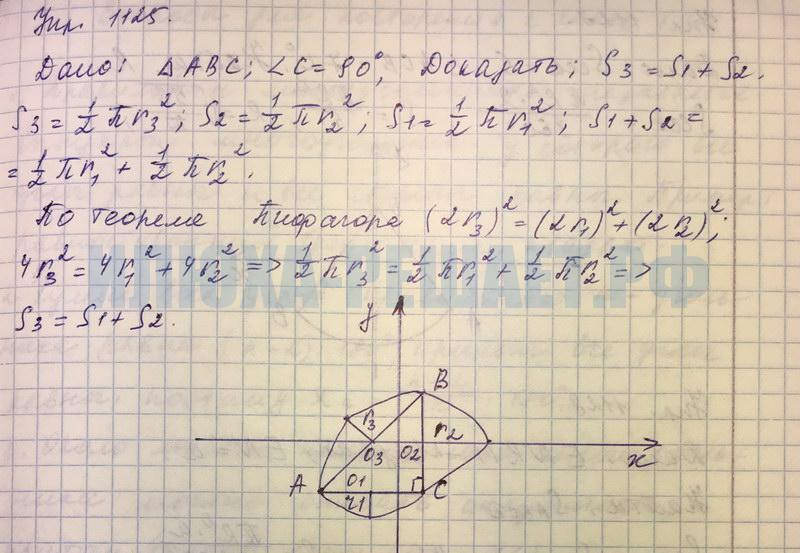 Упр. 1125.
Дано: △ABC; ∠C = 90°, Доказать; S3 = S1 + S2.
S3 = 1/2 πr3²; S2 = 1/2 πr2²; S1 = 1/2 πr1²; S1 + S2 =
= 1/2 πr1² + 1/2 πr2².
По теореме Пифагора (2r3)² = (2r1)² + (2r2)²;
4r3² = 4r1² + 4r2² => 1/2 πr3² = 1/2 πr1² + 1/2 πr2² =>
ИЛЮХА-РЕШАЕТ.РФ
S3 = S1 + S2.
y
B
r3
r2
O3
O2
x
O1
A
C
r1